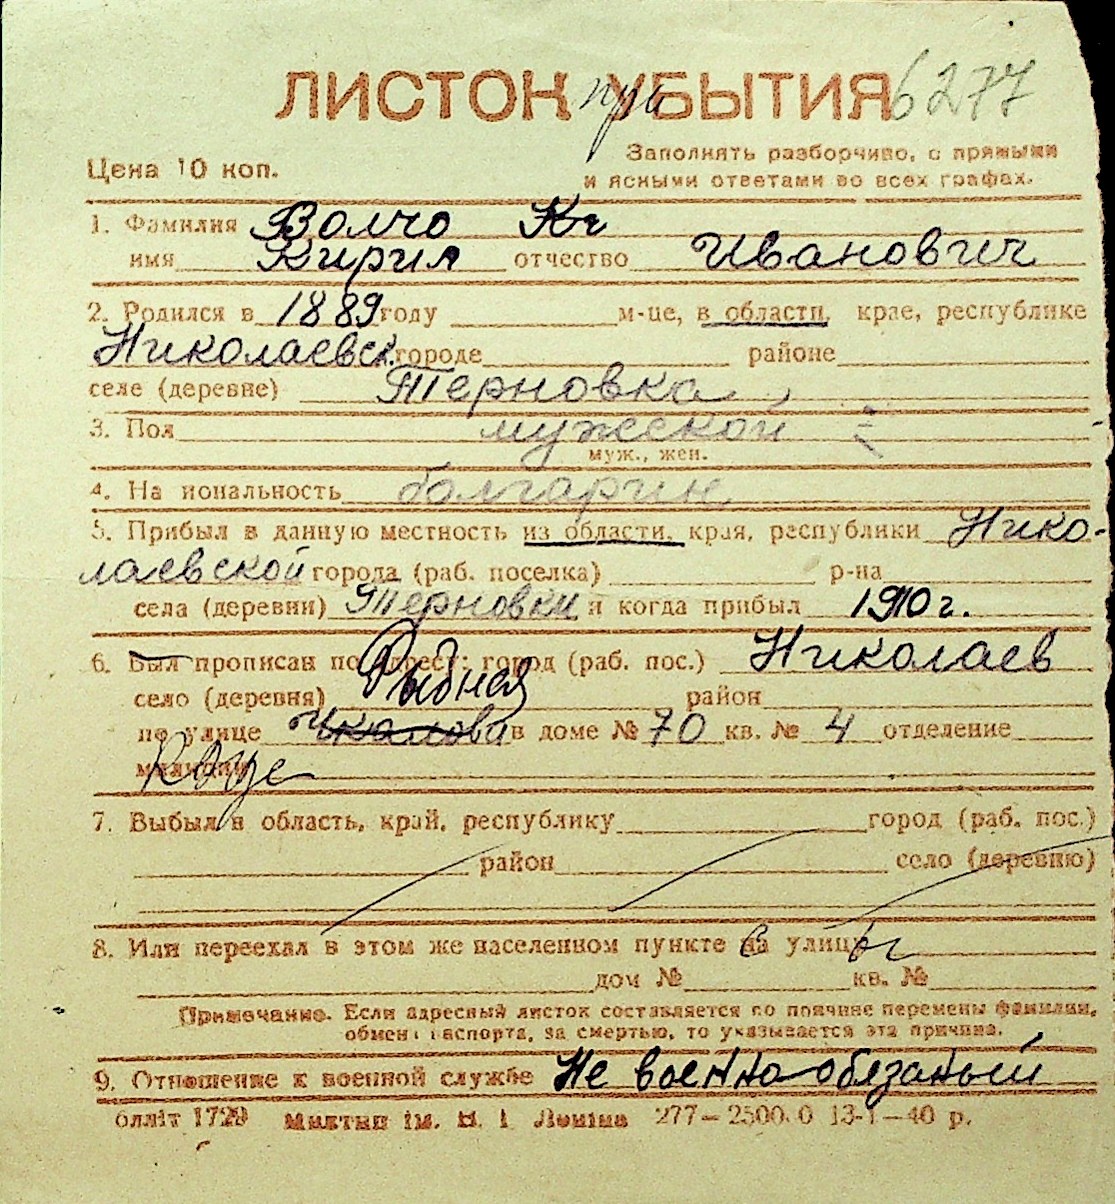 ЛИСТОК при УБЫТИЯ 6277
Цена 10 коп.
Заполнять разборчиво, с прямыми
и ясными ответами во всех графах.
1. Фамилия Волчо Кг
имя Кирил отчество Иванович
2. Родился в 1889 году м-це, в области, крае, республике
Николаевск. городе районе
селе (деревне) Терновка
3. Пол мужской
муж., жен.
4. На иональность болгарин
5. Прибыл в данную местность из области, края, республики Нико-
лаевской города (раб. поселка) р-на
села (деревни) Терновки и когда прибыл 1910 г.
6. Был прописан по адресу: город (раб. пос.) Николаев
село (деревня) Рыбная район
по улице Чкалова в доме № 70 кв. № 4 отделение
милиции
7. Выбыл в область, край, республику город (раб. пос.)
район село (деревню)
8. Или переехал в этом же населенном пункте на улицу
дом № кв. №
Примечание. Если адресный листок составляется по причине перемены фамилии,
обмен паспорта, за смертью, то указывается эта причина.
9. Отношение к военной службе Не военно обязаный
блліт 1729 Миктип ім. В. І Леніна 277—2500.0 13-1—40 р.